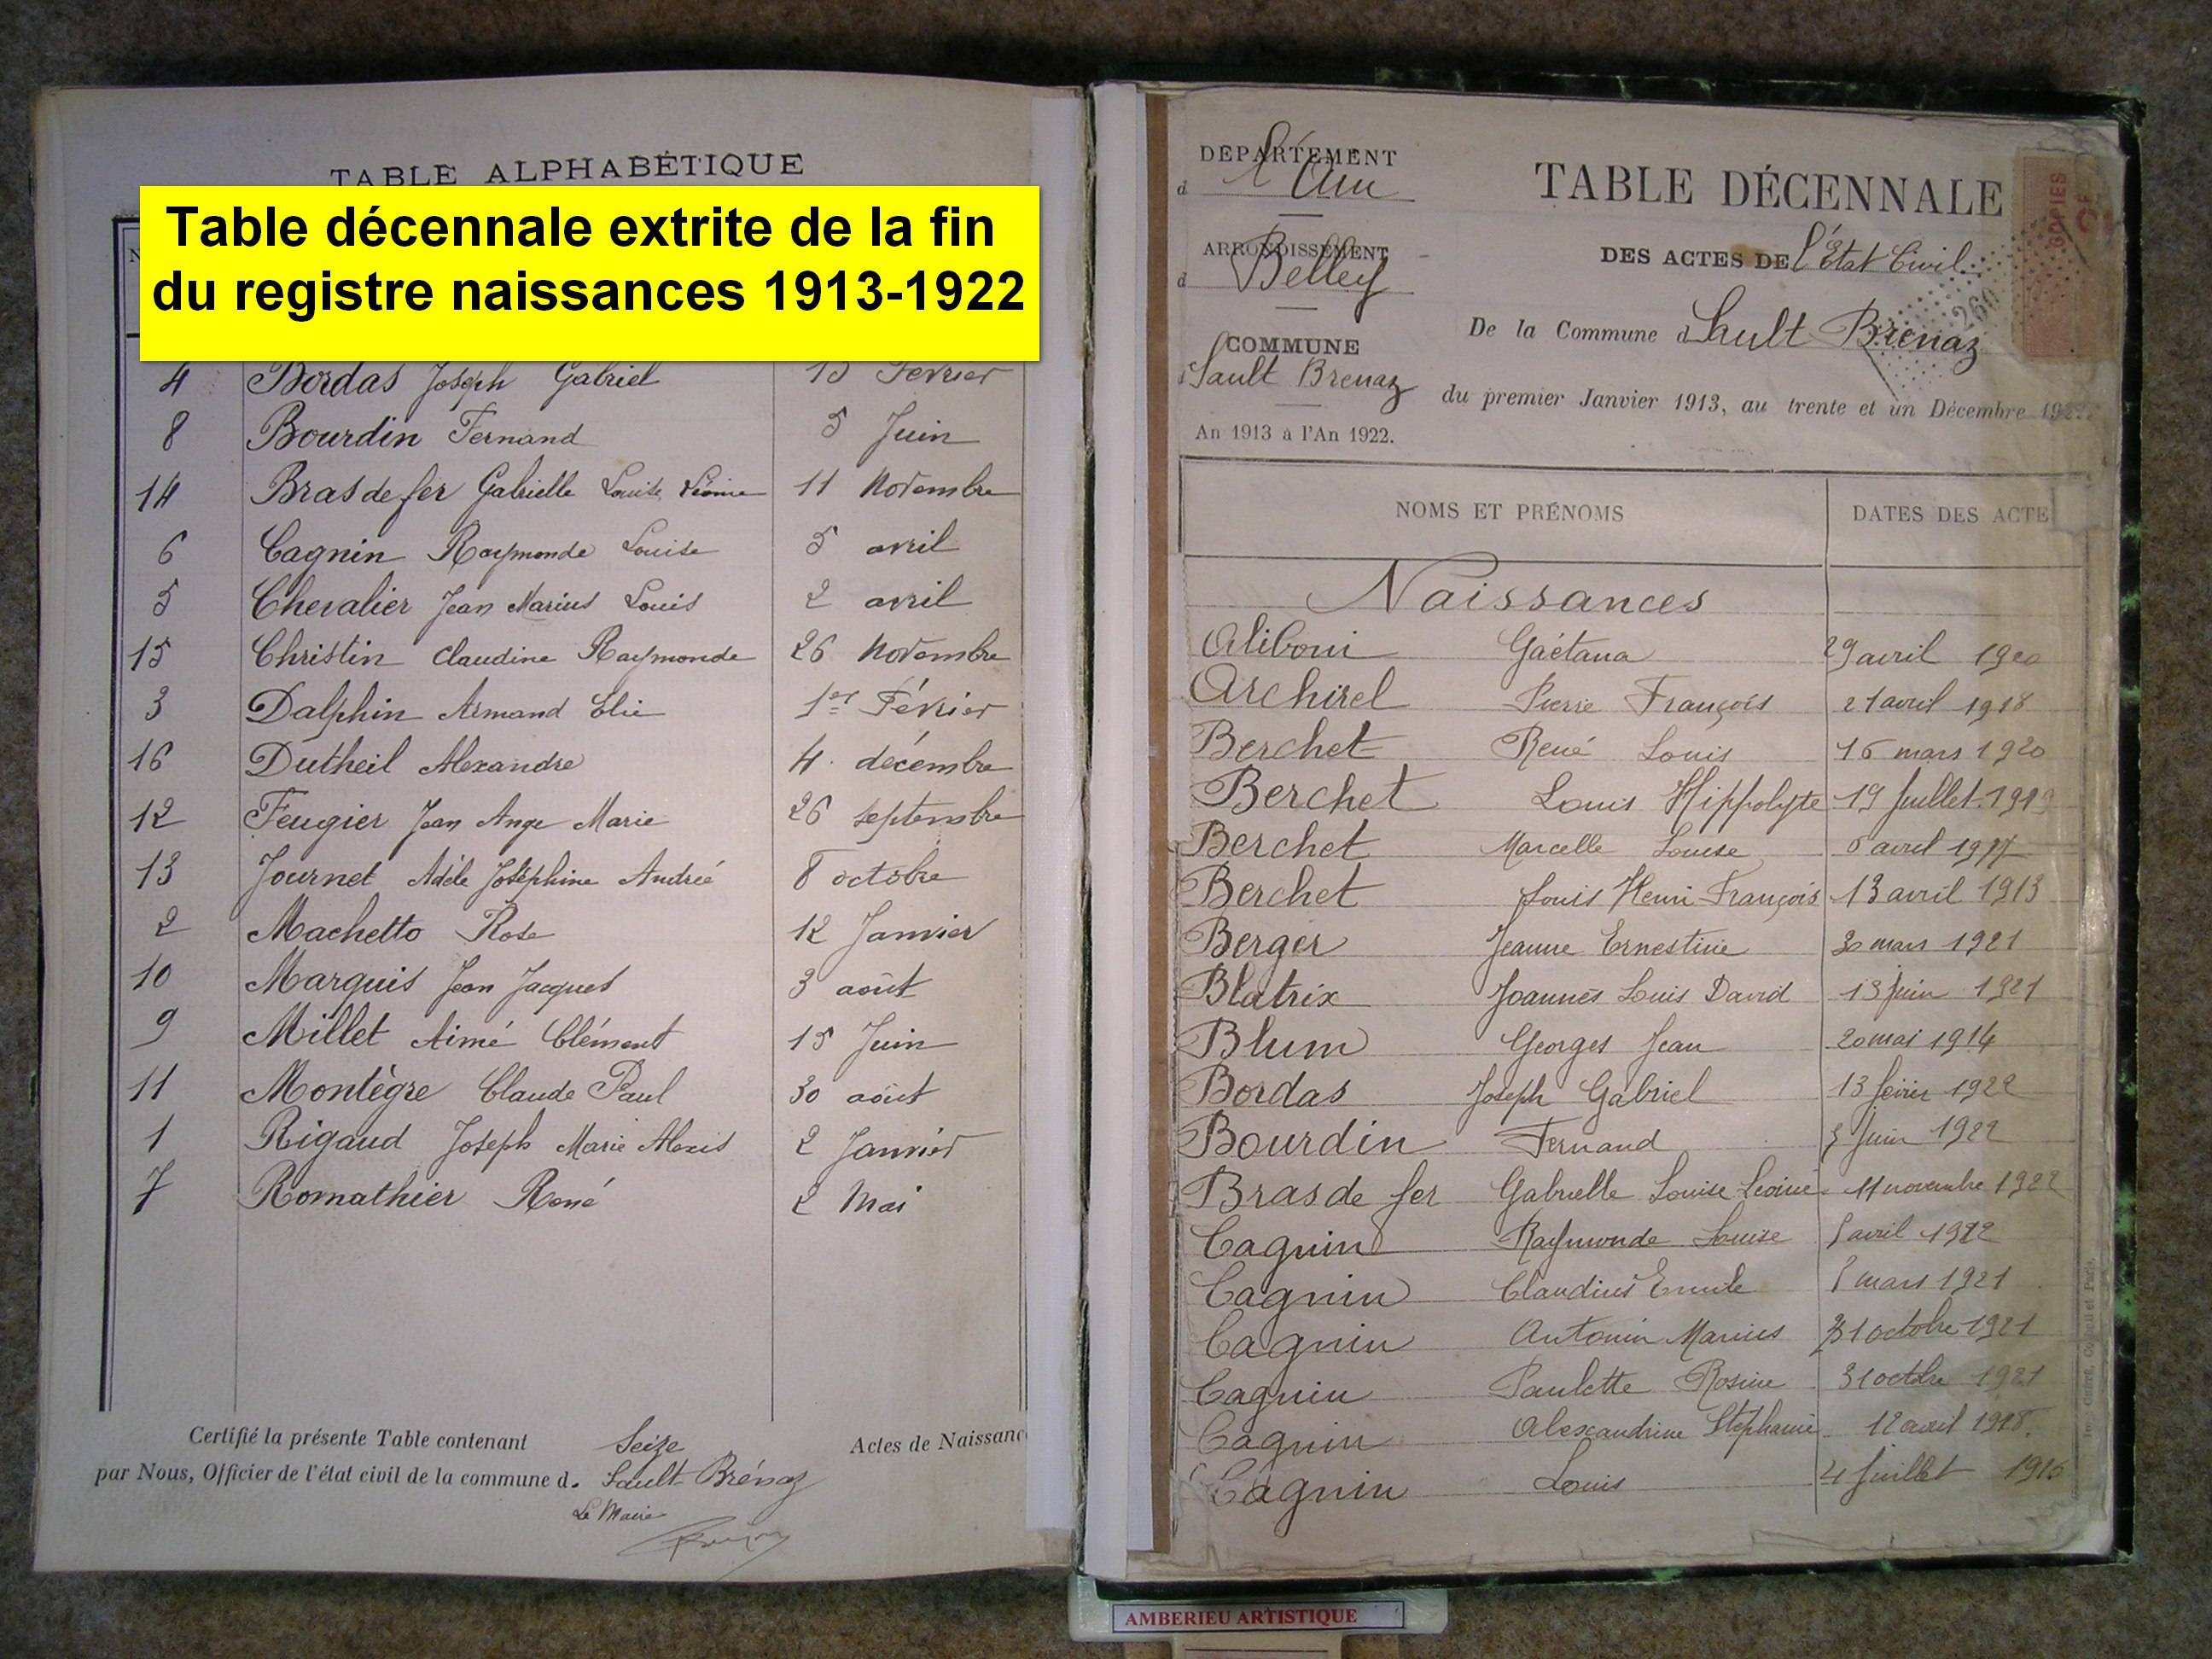 TABLE ALPHABÉTIQUE
Table décennale extrite de la fin
du registre naissances 1913-1922
4 Bordas Joseph Gabriel 13 Février
8 Bourdin Fernand 5 Juin
14 Bras de fer Gabrielle Louise Léonie 11 Novembre
6 Cagnin Raymonde Louise 5 avril
5 Chevalier Jean Marius Louis 2 avril
15 Christin Claudine Raymonde 26 Novembre
3 Dalphin Armand Elie 1er Février
16 Dutheil Alexandre 4 décembre
12 Feugier Jean Ange Marie 26 septembre
13 Journet Adèle Joséphine Andrée 8 octobre
2 Machetto Rose 12 Janvier
10 Marquis Jean Jacques 3 août
9 Millet Aimé Clément 15 Juin
11 Montègre Claude Paul 30 août
1 Rigaud Joseph Marie Alexis 2 Janvier
7 Romathier René 2 Mai
Certifié la présente Table contenant Seize Actes de Naissanc
par Nous, Officier de l'état civil de la commune d. Sault-Brénaz
Le Maire
DEPARTEMENT
d l'Ain
ARRONDISSEMENT
d Belley
COMMUNE
Sault Brenaz
An 1913 à l'An 1922.
TABLE DÉCENNALE
DES ACTES DE l'État Civil
De la Commune d Sault Brenaz
du premier Janvier 1913, au trente et un Décembre 192
COPIES
260
NOMS ET PRÉNOMS DATES DES ACTE
Naissances
Aliboni Gaétana 29 avril 1920
Archirel Pierre François 21 avril 1918
Berchet René Louis 16 mars 1920
Berchet Louis Hippolyte 19 Juillet 1919
Berchet Marcelle Louise avril
Berchet Louis Henri François 13 avril 1913
Berger Jeanne Ernestine 30 mars 1921
Blatrix Joannès Louis David 13 juin 1921
Blum Georges Jean 20 mai 1914
Bordas Joseph Gabriel 13 février 1922
Bourdin Fernand 5 Juin 1922
Bras de fer Gabrielle Louise Léonie 11 novembre 1922
Cagnin Raymonde Louise 5 avril 1922
Cagnin Claudius Emile mars 1921
Cagnin Antonin Marius 31 octobre 1921
Cagnin Paulette Rosine 31 octobre 1921
Cagnin Alexandrine Stéphanie 12 avril 1918.
Cagnin Louis 4 Juillet 1916
AMBERIEU ARTISTIQUE